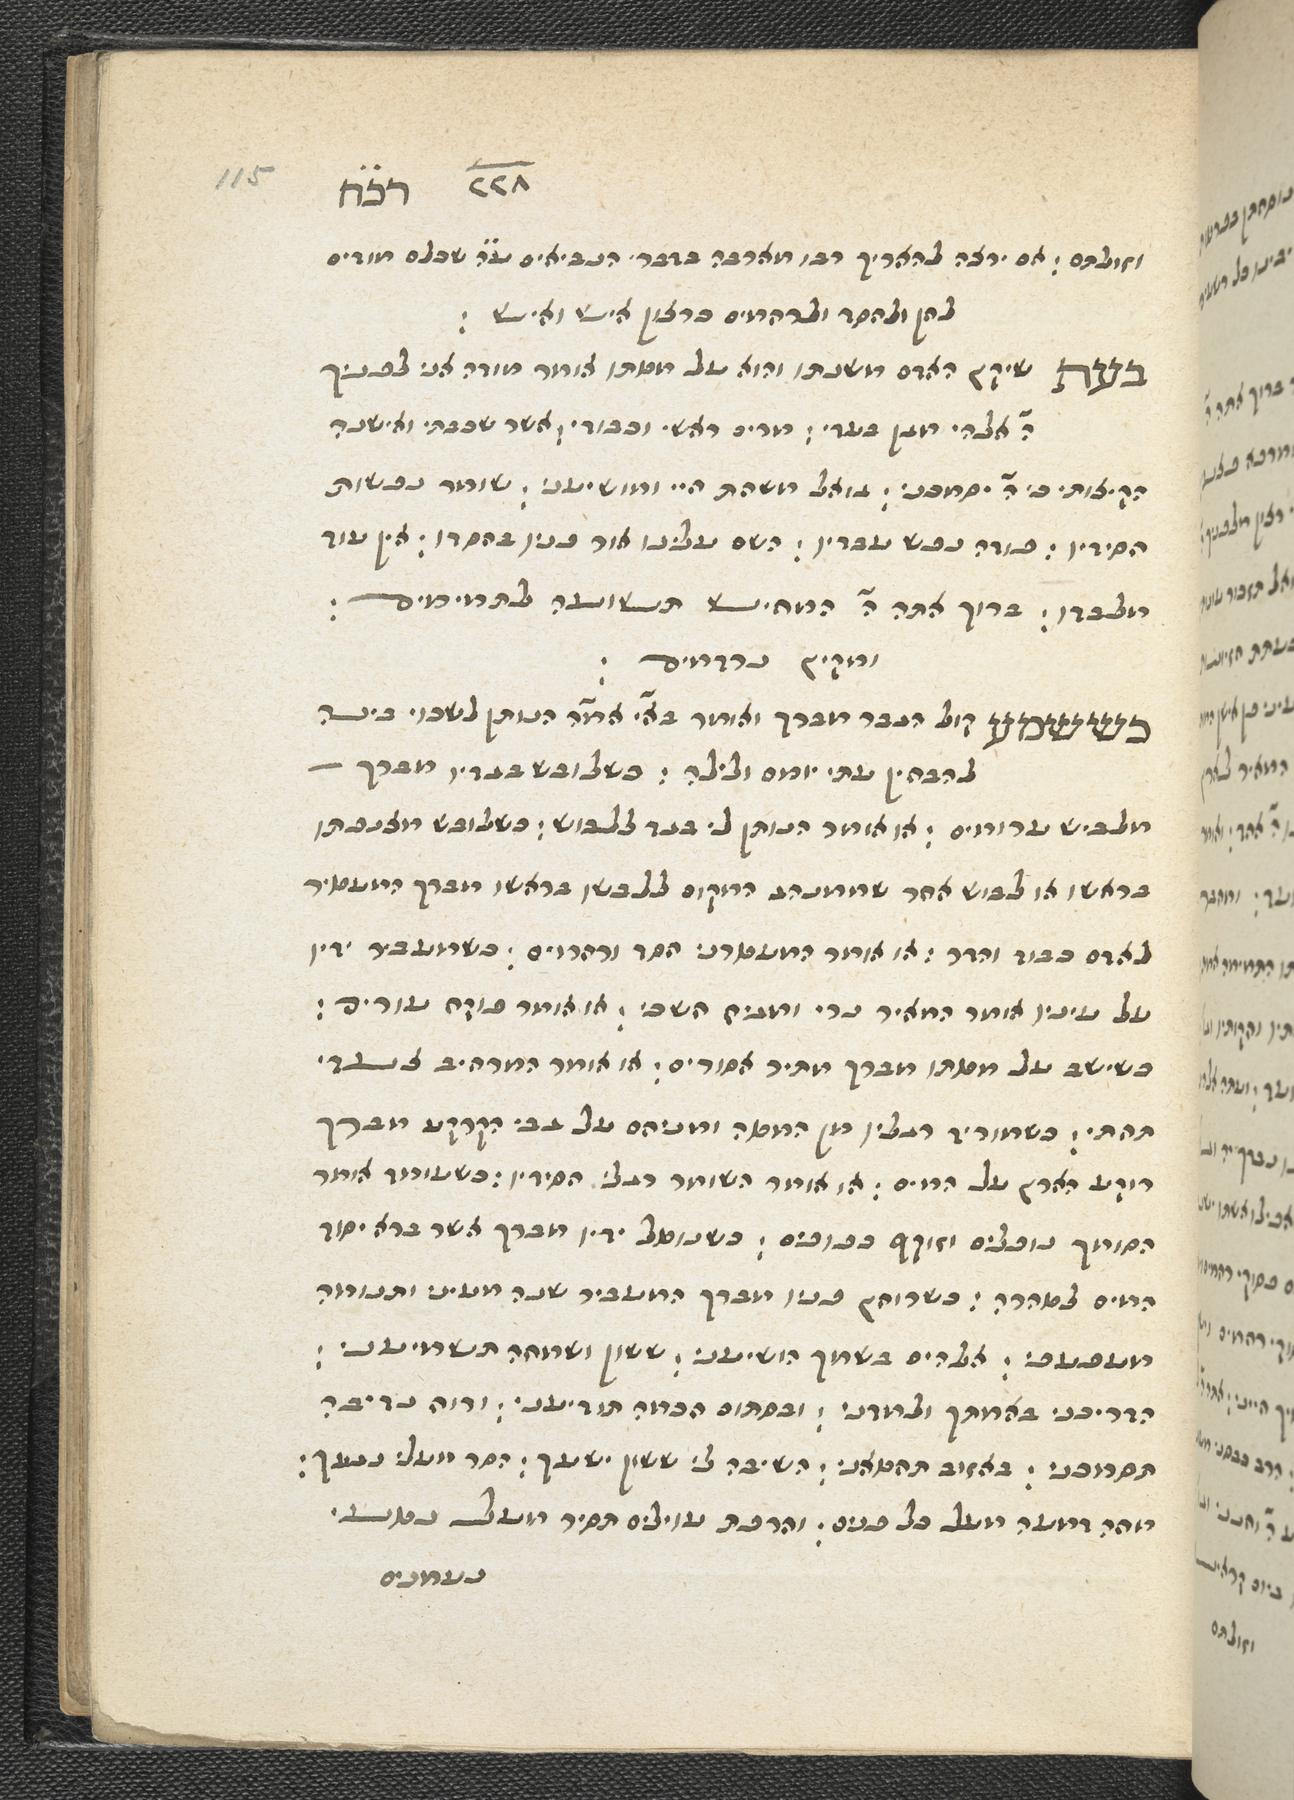 115 רכ̈ח ٢٢٨
וזולתם : אם ירצה להאריך רבו מארבה בדברי הנביאים ע̈ה שכלם מורים
לחן ולחסד ולרחמים כרצון איש ואיש :
בעת שיקם האדם משנתו והוא על מטתו אומר מודה אני לפניך
ה̄ אלהי מגן בעדי : מרים ראשי וכבודי : אשר שכבתי ואישנה
הקיצותי כי ה̄ יסמכני : גואל משחת חיי ומושיעני : שומר נפשות
חסידיו : פודה נפש עבדיו : השם עלינו אור פניו בחסדו : אין עוד
מלבדו : ברוך אתה ה̄ המחיש תשועה לתמימים :
ומקים נרדמים :
כשישמע קול הגבר מברך ואומר בא̄י אמ̄ה הנותן לשכוי בינה
להבחין עתי יומם ולילה : כשלובש בגדיו מברך
מלביש ערומים : או אומר הנותן לי בגד ללבוש : כשלובש מצנפתו
בראשו או לבוש אחר שממנהג המקום ללבשן בראשו מברך המעטיר
לאדם כבוד והדר : או אומר המעטרני חסד ורחמים : כשמעביר ידיו
על עיניו אומר המאיר נרי ומגיה חשכי : או אומר פוקח עורים :
כשישב על מטתו מברך מתיר אסורים : או אומר המרחיב צעדי
תחתי : כשמוריד רגליו מן המטה ומניחם על גבי הקרקע מברך
רוקע הארץ על המים : או אומר השומר רגלי חסידיו : כשעומד אומר
הסומך נופלים וזוקף כפופים : כשנוטל ידיו מברך אשר ברא יסוד
המים לטהרה : כשרוחץ פניו מברך המעביר שנה מעיני ותנומה
מעפעפי : אלהים בשמך הושיעני : ששון ושמחה תשמיעני :
הדריכני באמתך ולמדני : ובסתום חכמה תודיעני : ורוח נדיבה
תסמכני : באזוב תחטאני : השיבה לי ששון ישעך : הסר מעלי נגעך :
מחה דמעה מעל כל פנים : וחרפת עוילים תסיר מעל נטעי
נעמנים